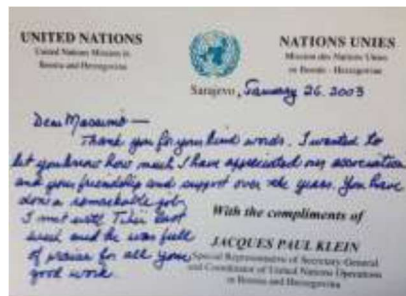 UNITED NATIONS
United Nations Mission in
Bosnia and Herzegovina
NATIONS UNIES
Mission des Nations Unies
en Bosnie - Herzégovine
Sarajevo, January 26. 2003
Dear Massimo —
Thank you for your kind words. I wanted to
let you know how much I have appreciated our association
and your friendship and support over the years. You have
done a remarkable job,
I met with last
week and he was full
of praise for all your
good work.
With the compliments of
JACQUES PAUL KLEIN
Special Representative of Secretary-General
and Coordinator of United Nations Operations
in Bosnia and Herzegovina